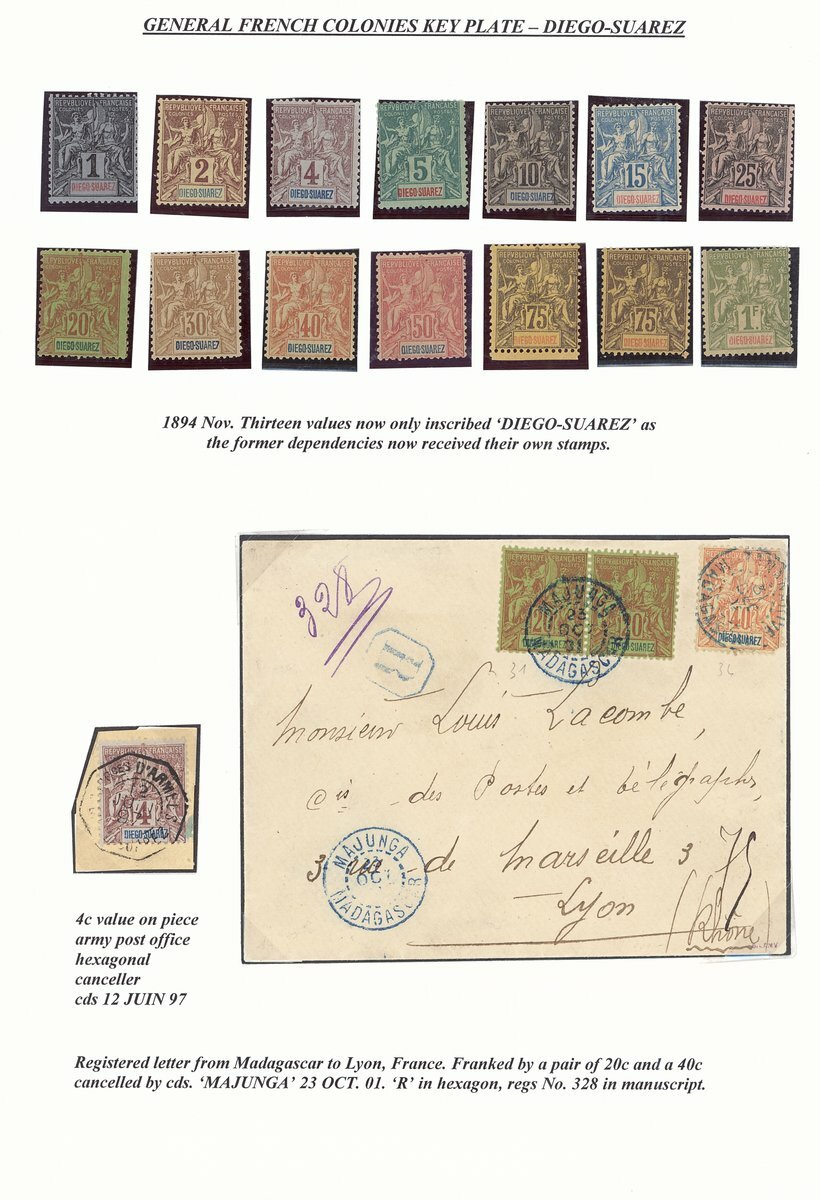 GENERAL FRENCH COLONIES KEY PLATE – DIEGO-SUAREZ
REPVBLIQVE FRANÇAISE
COLONIES POSTES
1
DIEGO-SUAREZ
REPVBLIQVE FRANÇAISE
COLONIES POSTES
2
DIEGO-SUAREZ
REPVBLIQVE FRANÇAISE
COLONIES POSTES
4
DIEGO-SUAREZ
REPVBLIQVE FRANÇAISE
COLONIES POSTES
5
DIEGO-SUAREZ
REPVBLIQVE FRANÇAISE
COLONIES POSTES
10
DIEGO-SUAREZ
REPVBLIQVE FRANÇAISE
COLONIES POSTES
15
DIEGO-SUAREZ
REPVBLIQVE FRANÇAISE
COLONIES POSTES
25
DIEGO-SUAREZ
REPVBLIQVE FRANÇAISE
COLONIES POSTES
20
DIEGO-SUAREZ
REPVBLIQVE FRANÇAISE
COLONIES POSTES
30
DIEGO-SUAREZ
REPVBLIQVE FRANÇAISE
COLONIES POSTES
40
DIEGO-SUAREZ
REPVBLIQVE FRANÇAISE
COLONIES POSTES
50
DIEGO-SUAREZ
REPVBLIQVE FRANÇAISE
COLONIES POSTES
75
DIEGO-SUAREZ
REPVBLIQVE FRANÇAISE
COLONIES POSTES
75
DIEGO-SUAREZ
REPVBLIQVE FRANÇAISE
COLONIES POSTES
1F
DIEGO-SUAREZ
1894 Nov. Thirteen values now only inscribed ‘DIEGO-SUAREZ’ as
the former dependencies now received their own stamps.
328
R
20
DIEGO-SUAREZ
20
DIEGO-SUAREZ
MAJUNGA
23
OCT
MADAGASCAR
40
DIEGO-SUAREZ
31
34
Monsieur Louis Lacombe,
des Postes et télégraphes
3 rue de Marseille 3
75
Lyon
(Rhône)
MAJUNGA
OCT
MADAGASCAR
REPVBLIQVE FRANÇAISE
D'ARMÉES
4
DIEGO-SUAREZ
4c value on piece
army post office
hexagonal
canceller
cds 12 JUIN 97
Registered letter from Madagascar to Lyon, France. Franked by a pair of 20c and a 40c
cancelled by cds. ‘MAJUNGA’ 23 OCT. 01. ‘R’ in hexagon, regs No. 328 in manuscript.